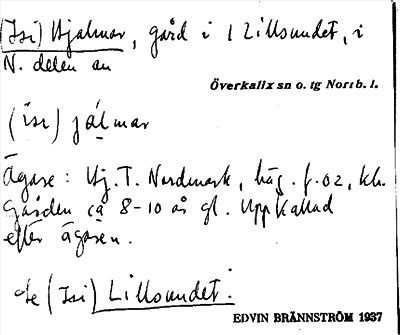 (Isi) Hjalmar, gård i Lillsundet, i
N. delen av
Överkalix sn o. tg Norrb. l.
(ísı) jálmar
Ägare: Hj. T. Nordmark, häg. f. 02, kh.
Gården ca 8-10 år gl. Uppkallad
efter ägaren.
(Isi) Lillsundet.
EDVIN BRÄNNSTRÖM 1937